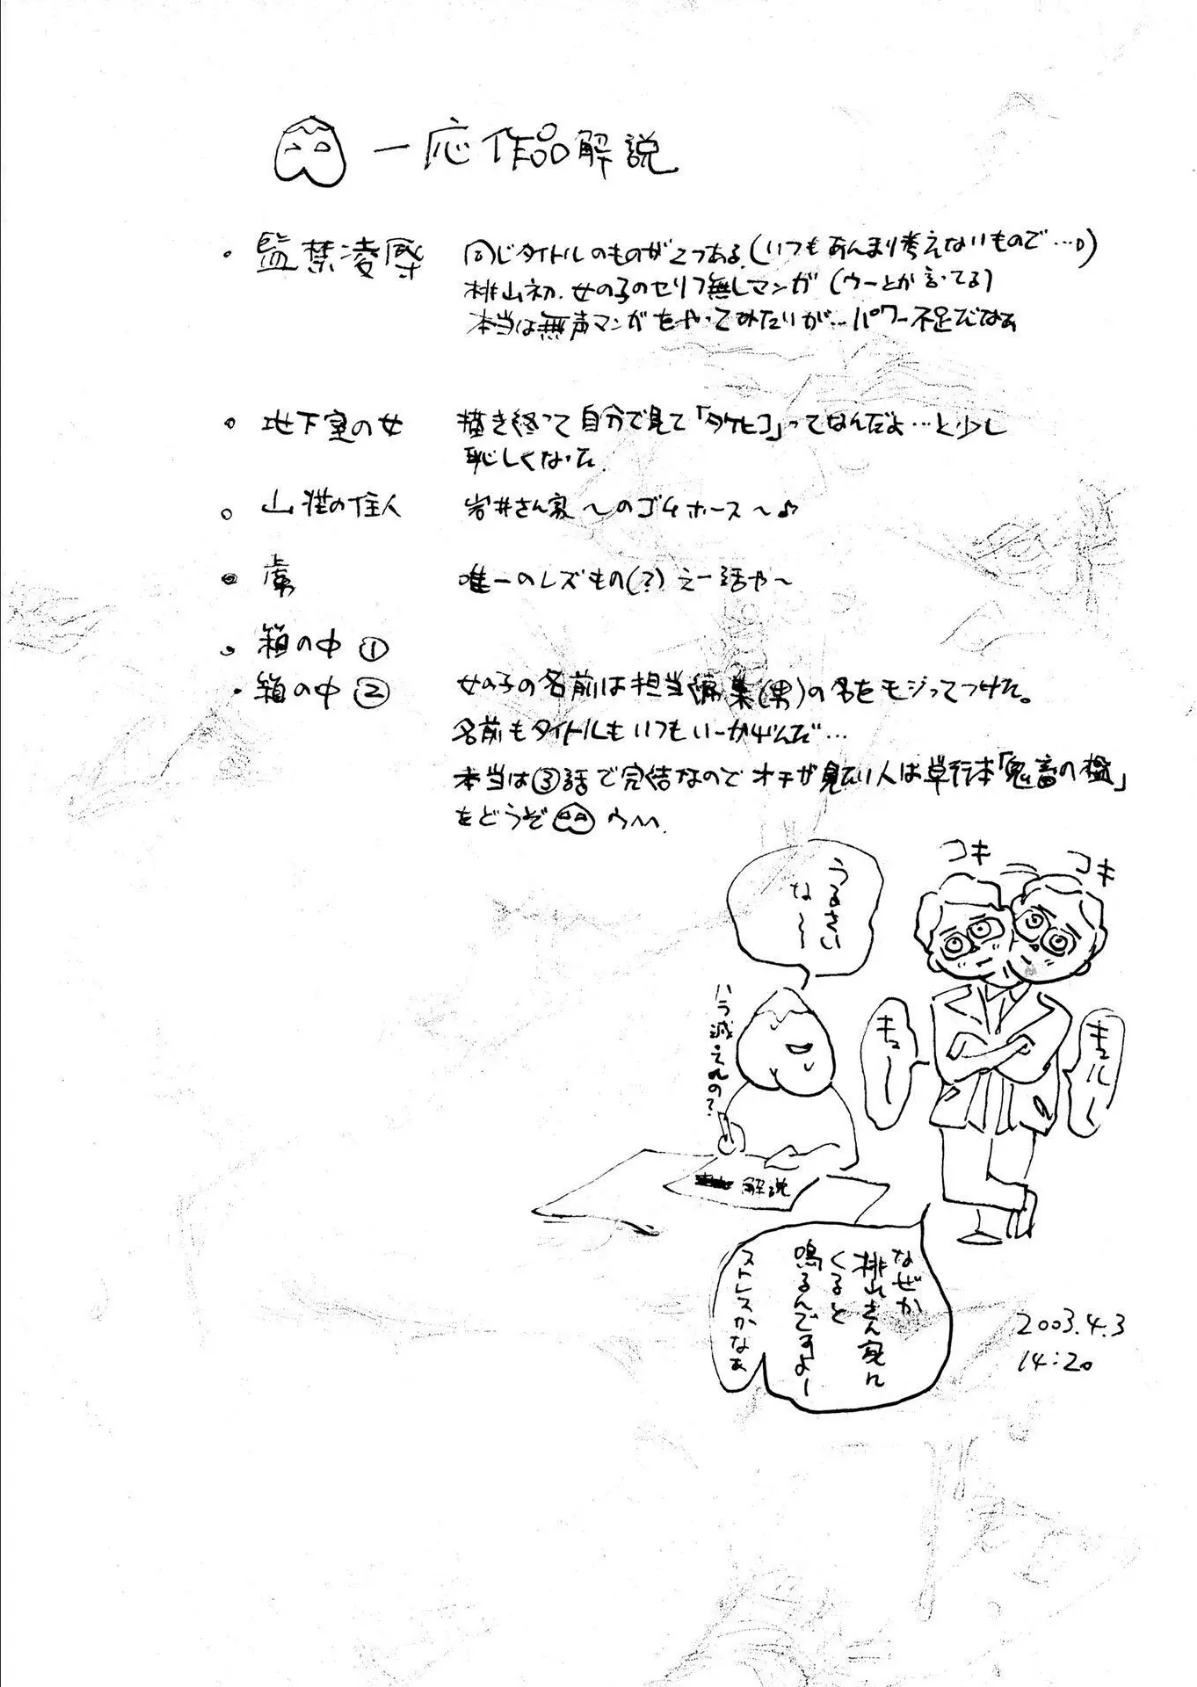 一応作品解説
・監禁凌辱 同じタイトルのものが2つある。(いつもあんまり考えないもので…)
桃山初、女の子のセリフ無しマンガ(ウーとか言ってる)
本当は無声マンガをやってみたいが…パワー不足だなぁ
・地下室の女 描き終って自分で見て「タケヒコ」ってなんだよ…と少し
恥しくなった。
・山荘の住人 岩井さん家〜のゴムホース〜♪
・虜 唯一のレズもの(?) えー話や〜
・箱の中①
・箱の中② 女の子の名前は担当編集(男)の名をモジってつけた。
名前もタイトルもいつもいーかげんだ…
本当は③話で完結なのでオチが見たい人は単行本「鬼畜の檻」
をどうぞ
コキ
コキ
うるさい
な〜〜
ハラ減ってんの?
キュー
キュルルー
解説
なぜか
桃山さん家に
くると
鳴るんですよー
ストレスかなぁ
2003.4.3
14:20